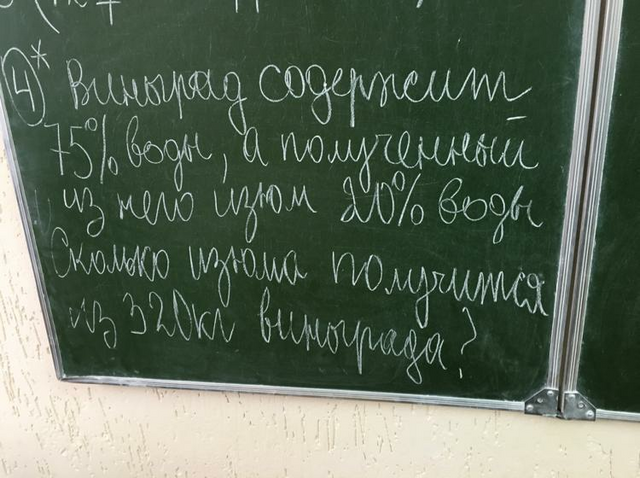 4* Виноград содержит
75% воды, а полученный
из него изюм 20% воды
Сколько изюма получится
из 320кг винограда?